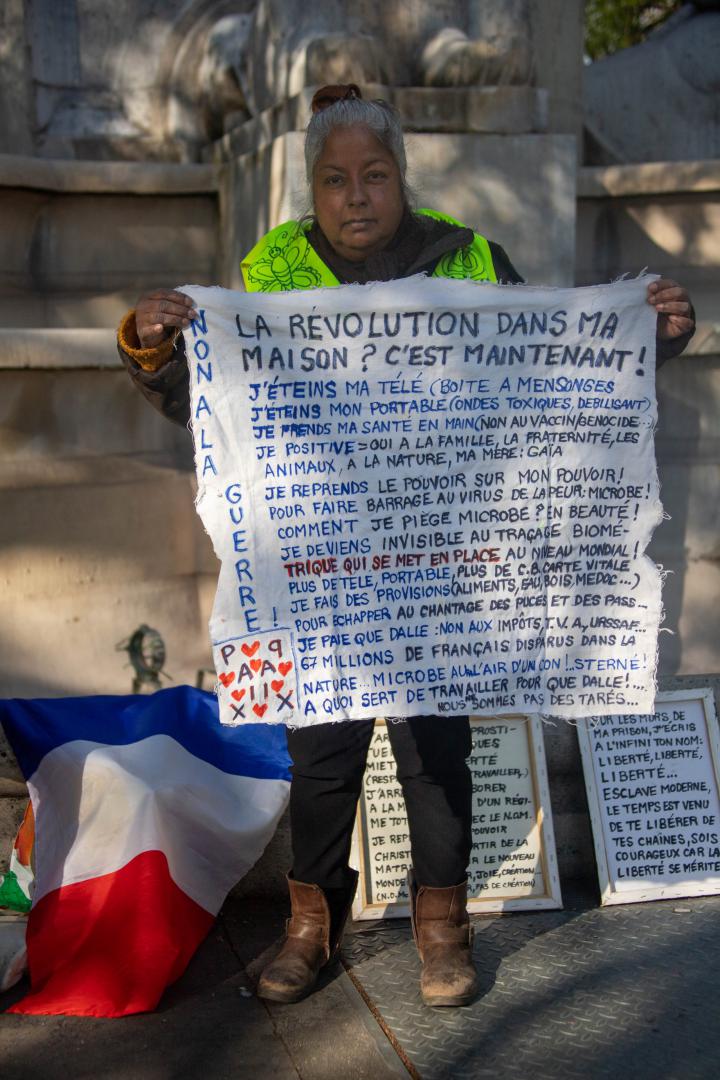 NON A LA GUERRE !
LA RÉVOLUTION DANS MA
MAISON ? C'EST MAINTENANT !
J'ÉTEINS MA TÉLÉ (BOITE A MENSONGES
J'ÉTEINS MON PORTABLE (ONDES TOXIQUES, DEBILISANT)
JE PRENDS MA SANTÉ EN MAIN (NON AU VACCIN/GENOCIDE...
JE POSITIVE = OUI A LA FAMILLE, LA FRATERNITÉ, LES
ANIMAUX, A LA NATURE, MA MÈRE : GAÏA
JE REPRENDS LE POUVOIR SUR MON POUVOIR !
POUR FAIRE BARRAGE AU VIRUS DE LA PEUR : MICROBE !
COMMENT JE PIÈGE MICROBE ? EN BEAUTÉ !
JE DEVIENS INVISIBLE AU TRAÇAGE BIOMÉ-
TRIQUE QUI SE MET EN PLACE AU NIVEAU MONDIAL !
PLUS DE TELE, PORTABLE, PLUS DE C.B. CARTE VITALE
JE FAIS DES PROVISIONS (ALIMENTS, EAU, BOIS, MEDOC...)
POUR ECHAPPER AU CHANTAGE DES PUCES ET DES PASS...
JE PAIE QUE DALLE : NON AUX IMPÔTS, T.V.A., URSSAF...
67 MILLIONS DE FRANÇAIS DISPARUS DANS LA
NATURE... MICROBE A L'AIR D'UN CON !..STERNÉ !
A QUOI SERT DE TRAVAILLER POUR QUE DALLE !...
NOUS NE SOMMES PAS DES TARÉS...
P A I X
P A I X
9
PROSTI-
QUES
BERTÉ
MIET
(RESP
TRAVAILLER,)
J'ARR
BORER
A LA M
D'UN RÉGI-
ME TOT
EC LE N.O.M.
JE REP
POUVOIR
PARTIR DE LA
CHRIST
MATR
R LE NOUVEAU
MONDE
JOIE, CRÉATION...
(N.D.M
PAS DE CRÉATION)
SUR LES MURS DE
MA PRISON, J'ÉCRIS
A L'INFINI TON NOM :
LIBERTÉ, LIBERTÉ,
LIBERTÉ...
ESCLAVE MODERNE,
LE TEMPS EST VENU
DE TE LIBÉRER DE
TES CHAÎNES, SOIS
COURAGEUX CAR LA
LIBERTÉ SE MÉRITE